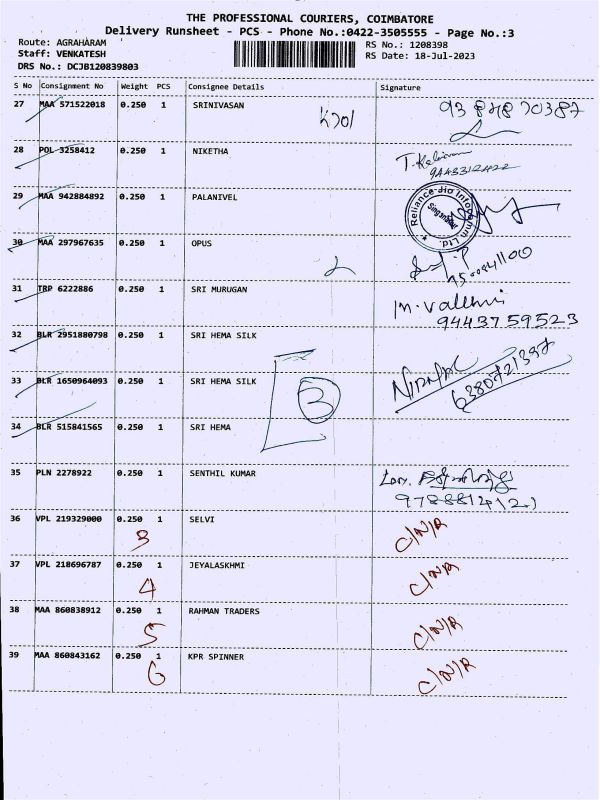 THE PROFESSIONAL COURIERS, COIMBATORE
Delivery Runsheet - PCS - Phone No.:0422-3505555 - Page No.:3
Route: AGRAHARAM
RS No.: 1208398
Staff: VENKATESH
RS Date: 18-Jul-2023
DRS No.: DCJB120839803
S No Consignment No Weight PCS Consignee Details Signature
27 MAA 571522018 0.250 1 SRINIVASAN
28 POL 3258412 0.250 1 NIKETHA
9443312422
29 MAA 942884892 0.250 1 PALANIVEL
Reliance Jio Infocomm Ltd.
Singanallur
30 MAA 297967635 0.250 1 OPUS
31 TRP 6222886 0.250 1 SRI MURUGAN
9443759523
32 BLR 2951880798 0.250 1 SRI HEMA SILK
33 BLR 1650964093 0.250 1 SRI HEMA SILK
3
6380721397
34 BLR 515841565 0.250 1 SRI HEMA
35 PLN 2278922 0.250 1 SENTHIL KUMAR
36 VPL 219329000 0.250 1 SELVI C/N/R
3
37 VPL 218696787 0.250 1 JEYALASKHMI C/N/R
4
38 MAA 860838912 0.250 1 RAHMAN TRADERS C/N/R
5
39 MAA 860843162 0.250 1 KPR SPINNER C/N/R
6